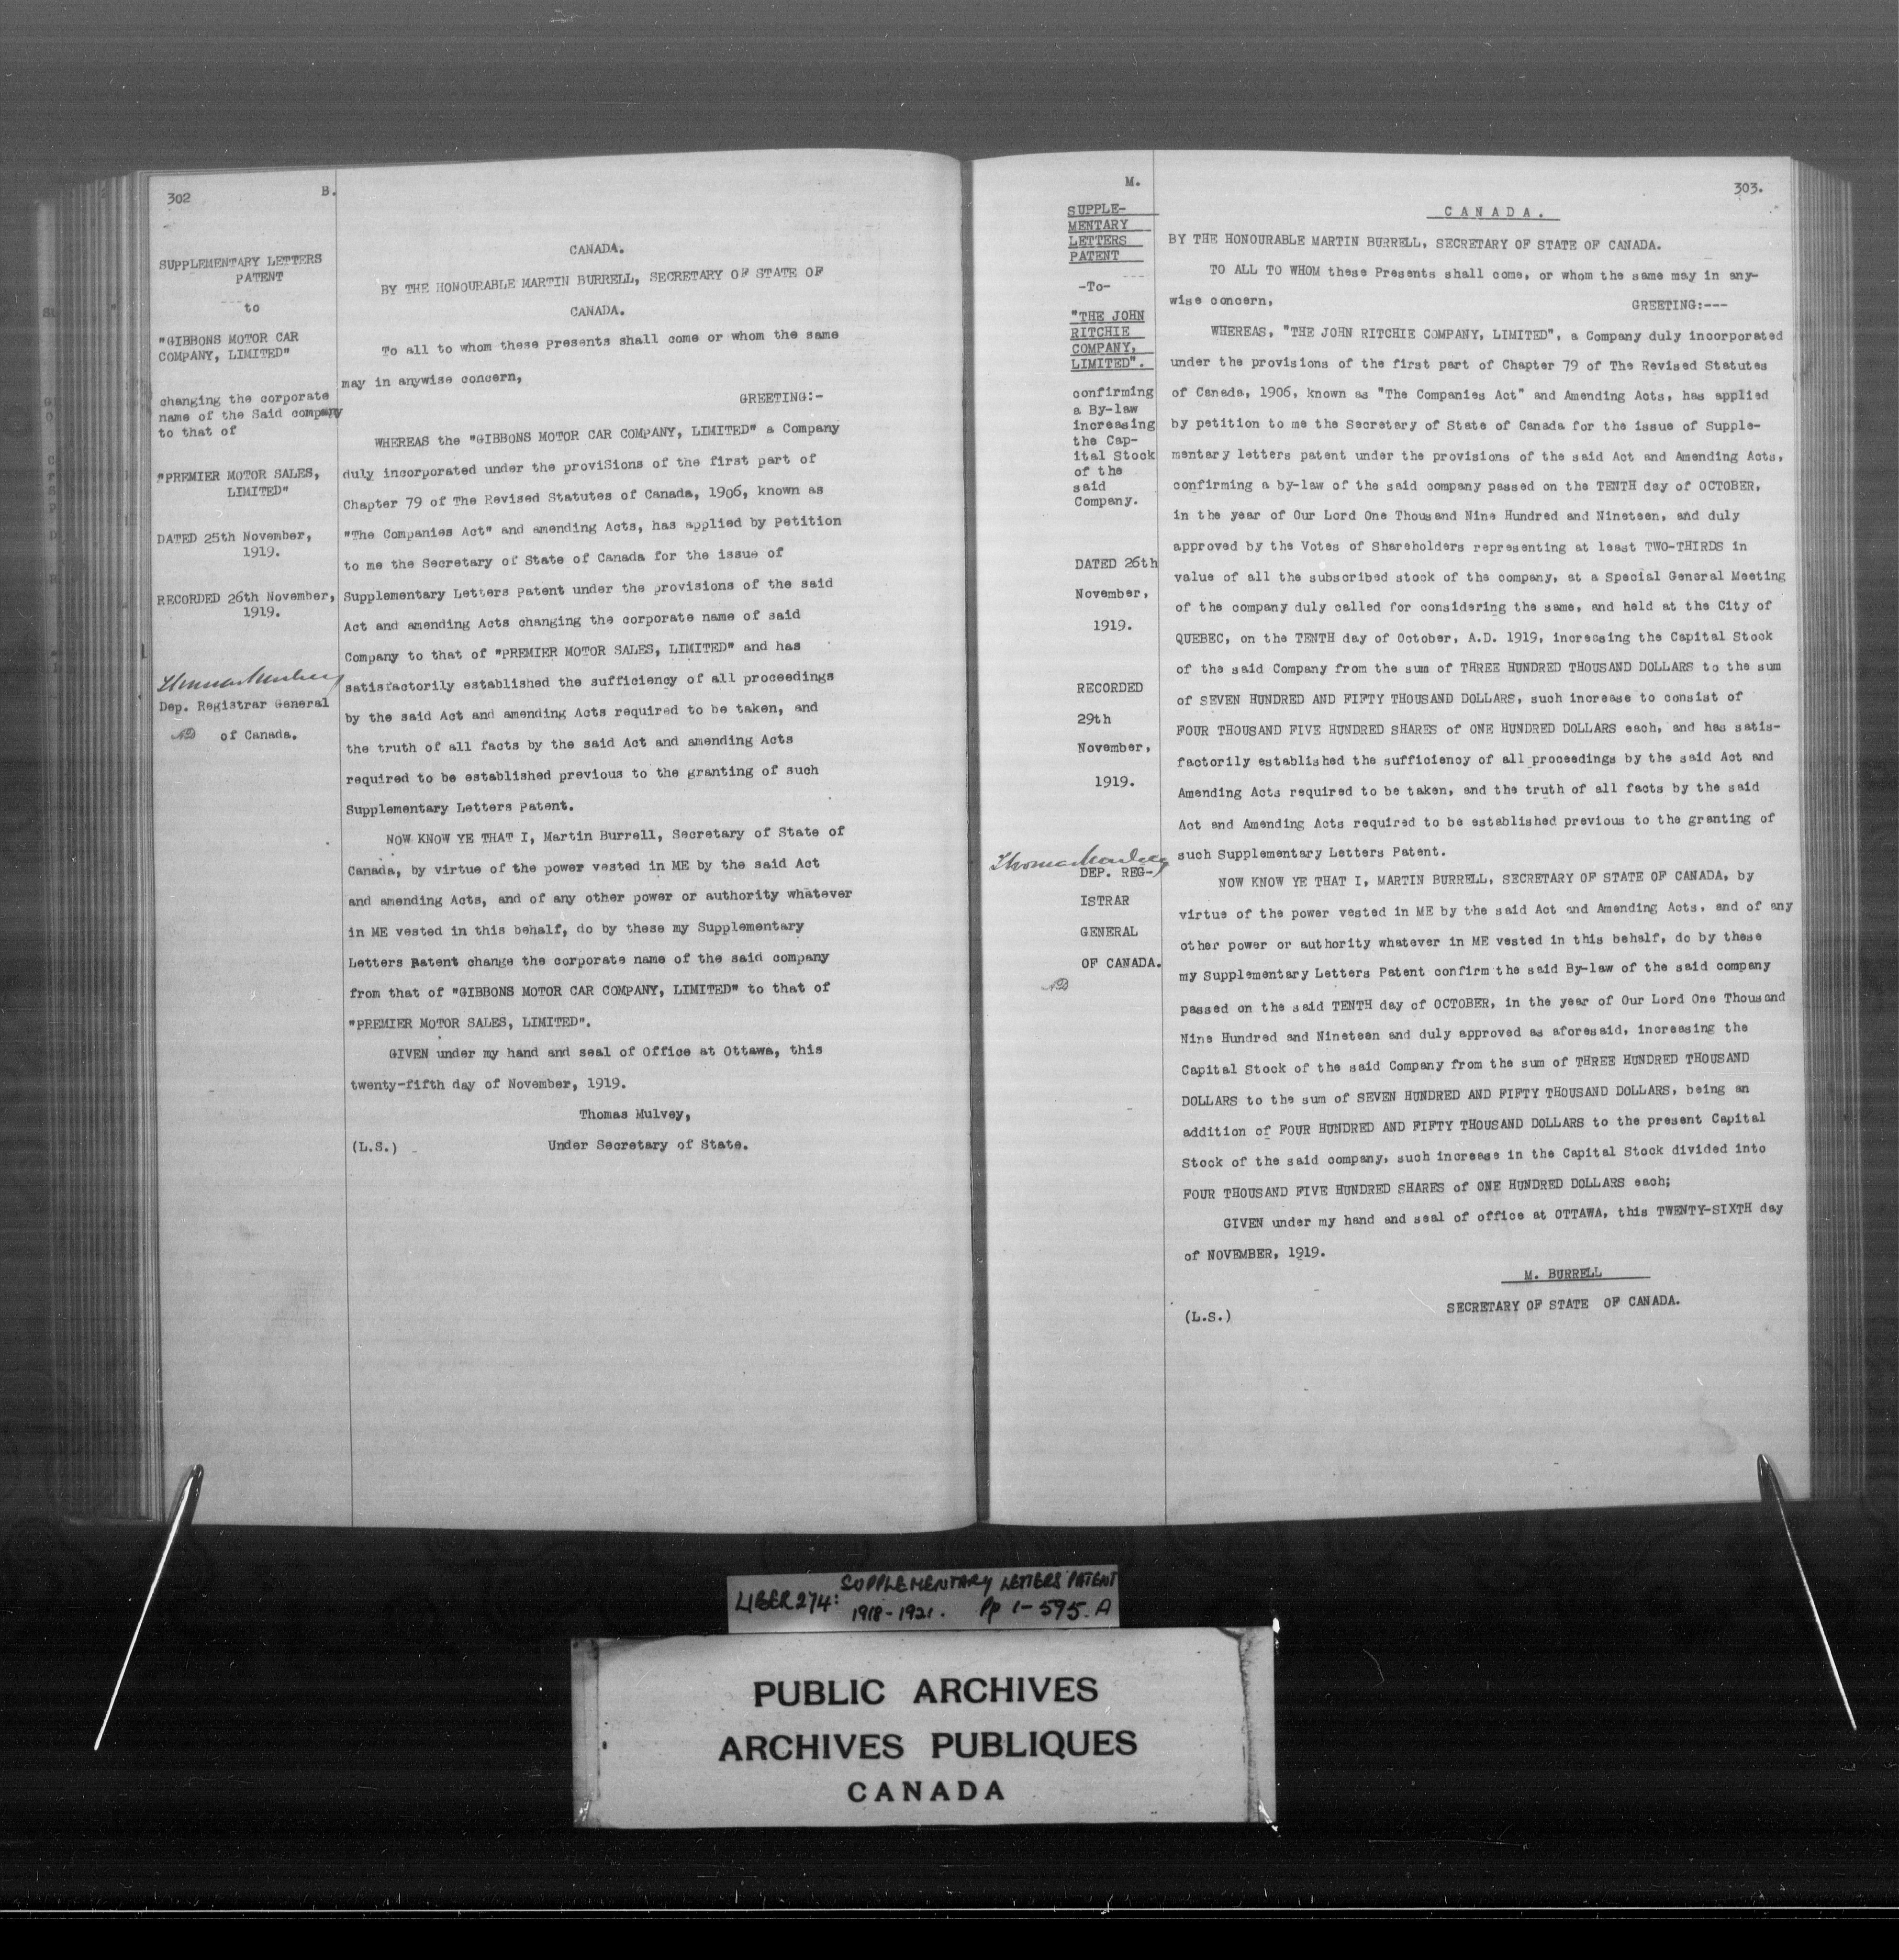 302
B.
SUPPLEMENTARY LETTERS
PATENT
---
to
"GIBBONS MOTOR CAR
COMPANY, LIMITED"
changing the corporate
name of the Said company
to that of
"PREMIER MOTOR SALES,
LIMITED"
DATED 25th November,
1919.
RECORDED 26th November,
1919.
Dep. Registrar General
of Canada.
CANADA.
BY THE HONOURABLE MARTIN BURRELL, SECRETARY OF STATE OF
CANADA.
To all to whom these Presents shall come or whom the same
may in anywise concern,
GREETING:-
WHEREAS the "GIBBONS MOTOR CAR COMPANY, LIMITED" a Company
duly incorporated under the proviSions of the first part of
Chapter 79 of The Revised Statutes of Canada, 1906, known as
"The Companies Act" and amending Acts, has applied by Petition
to me the Secretary of State of Canada for the issue of
Supplementary Letters Patent under the provisions of the said
Act and amending Acts changing the corporate name of said
Company to that of "PREMIER MOTOR SALES, LIMITED" and has
satisfactorily established the sufficiency of all proceedings
by the said Act and amending Acts required to be taken, and
the truth of all facts by the said Act and amending Acts
required to be established previous to the granting of such
Supplementary Letters Patent.
NOW KNOW YE THAT I, Martin Burrell, Secretary of State of
Canada, by virtue of the power vested in ME by the said Act
and amending Acts, and of any other power or authority whatever
in ME vested in this behalf, do by these my Supplementary
Letters Patent change the corporate name of the said company
from that of "GIBBONS MOTOR CAR COMPANY, LIMITED" to that of
"PREMIER MOTOR SALES, LIMITED".
GIVEN under my hand and seal of Office at Ottawa, this
twenty-fifth day of November, 1919.
Thomas Mulvey,
(L.S.) Under Secretary of State.
M.
303.
SUPPLE-
MENTARY
LETTERS
PATENT
---
-To-
"THE JOHN
RITCHIE
COMPANY,
LIMITED".
confirming
a By-law
increasing
the Cap-
ital Stock
of the
said
Company.
DATED 26th
November,
1919.
RECORDED
29th
November,
1919.
DEP. REG-
ISTRAR
GENERAL
OF CANADA.
CANADA.
BY THE HONOURABLE MARTIN BURRELL, SECRETARY OF STATE OF CANADA.
TO ALL TO WHOM these Presents shall come, or whom the same may in any-
wise concern, GREETING:---
WHEREAS, "THE JOHN RITCHIE COMPANY, LIMITED", a Company duly incorporated
under the provisions of the first part of Chapter 79 of The Revised Statutes
of Canada, 1906, known as "The Companies Act" and Amending Acts, has applied
by petition to me the Secretary of State of Canada for the issue of Supple-
mentary letters patent under the provisions of the said Act and Amending Acts,
confirming a by-law of the said company passed on the TENTH day of OCTOBER,
in the year of Our Lord One Thousand Nine Hundred and Nineteen, and duly
approved by the Votes of Shareholders representing at least TWO-THIRDS in
value of all the subscribed stock of the company, at a Special General Meeting
of the company duly called for considering the same, and held at the City of
QUEBEC, on the TENTH day of October, A.D. 1919, increasing the Capital Stock
of the said Company from the sum of THREE HUNDRED THOUSAND DOLLARS to the sum
of SEVEN HUNDRED AND FIFTY THOUSAND DOLLARS, such increase to consist of
FOUR THOUSAND FIVE HUNDRED SHARES of ONE HUNDRED DOLLARS each, and has satis-
factorily established the sufficiency of all proceedings by the said Act and
Amending Acts required to be taken, and the truth of all facts by the said
Act and Amending Acts required to be established previous to the granting of
such Supplementary Letters Patent.
NOW KNOW YE THAT I, MARTIN BURRELL, SECRETARY OF STATE OF CANADA, by
virtue of the power vested in ME by the said Act and Amending Acts, and of any
other power or authority whatever in ME vested in this behalf, do by these
my Supplementary Letters Patent confirm the said By-law of the said company
passed on the said TENTH day of OCTOBER, in the year of Our Lord One Thousand
Nine Hundred and Nineteen and duly approved as aforesaid, increasing the
Capital Stock of the said Company from the sum of THREE HUNDRED THOUSAND
DOLLARS to the sum of SEVEN HUNDRED AND FIFTY THOUSAND DOLLARS, being an
addition of FOUR HUNDRED AND FIFTY THOUSAND DOLLARS to the present Capital
Stock of the said company, such increase in the Capital Stock divided into
FOUR THOUSAND FIVE HUNDRED SHARES of ONE HUNDRED DOLLARS each;
GIVEN under my hand and seal of office at OTTAWA, this TWENTY-SIXTH day
of NOVEMBER, 1919.
M. BURRELL
SECRETARY OF STATE OF CANADA.
(L.S.)
LIBER 274: SUPPLEMENTARY LETTERS PATENT
1918-1921. Pp 1-595. A
PUBLIC ARCHIVES
ARCHIVES PUBLIQUES
CANADA